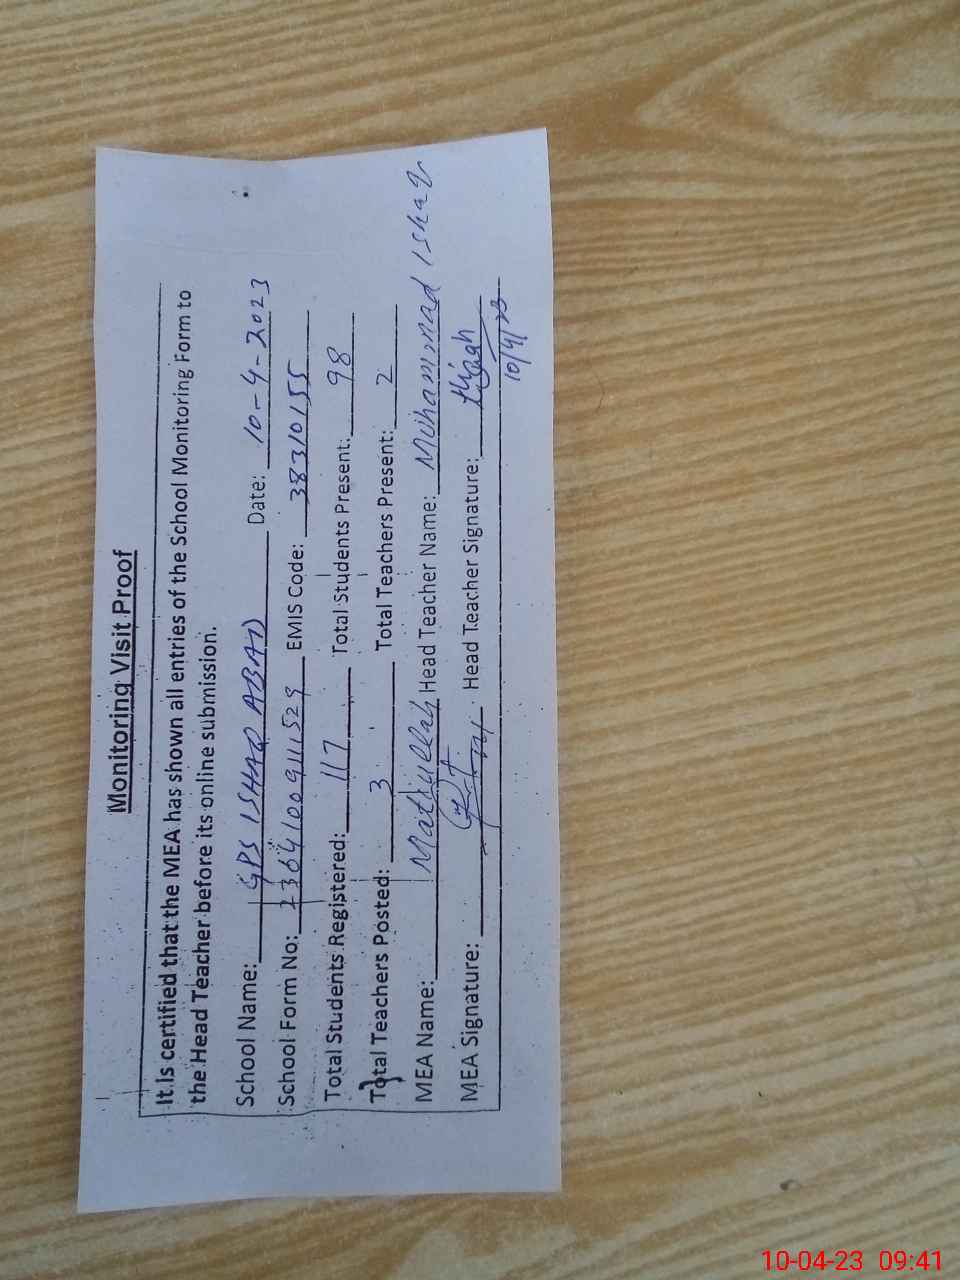 Monitoring Visit Proof
It is certified that the MEA has shown all entries of the School Monitoring Form to
the Head Teacher before its online submission.
School Name: GPS ISHAQ ABAD Date: 10-4-2023
School Form No: 2364100911529 EMIS Code: 38310155
Total Students Registered: 117 Total Students Present: 98
Total Teachers Posted: 3 Total Teachers Present: 2
MEA Name: Matiullah Head Teacher Name: Mohammad Ishaq
MEA Signature: Head Teacher Signature:
10/4/23
10-04-23 09:41